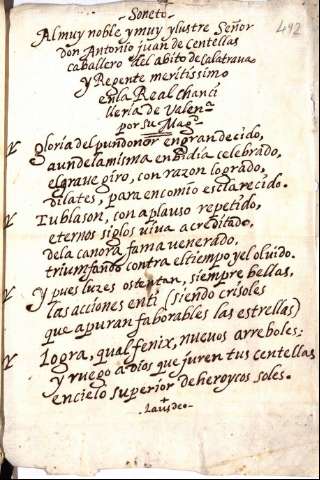 Soneto
Al muy noble y muy ylustre Señor
don Antonio juan de Centellas
caballero del abito de Calatraua
y Regente meritissimo
en la Real chanci
lleria de Valenª
por su Magᵈ
gloria del pundonor engrandecido,
aun de la misma enbidia celebrado,
el graue giro, con razon logrado,
dilates, para encomio esclarecido.
Tu blason, con aplauso repetido,
eternos siglos uiua acreditado,
de la canora fama venerado,
triumfando contra el tiempo y el oluido.
Y pues luzes ostentan, siempre bellas,
las acciones en ti (siendo crisoles
que apuran faborables las estrellas)
Logra, qual fenix, nueuos arreboles;
y ruego a Dios que juren tus centellas
en cielo superior de heroycos soles.
Laus deo